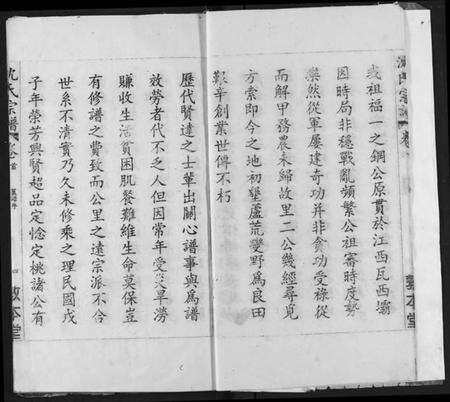 沈氏宗譜
卷
或祖福一之綱公原貫於江西瓦西壩
因時局非穩戰亂頻繁公祖審時度勢
慨然從軍屢建奇功并非貪功受祿從
而解甲務農未歸故里二公幾經尋覓
方索即今之地初墾蘆荒變野為良田
艱辛創業世傳不朽
敦本堂
歷代賢達之士輩出關心譜事與為譜
效勞者代不乏人但因常年受災旱勞
賺收生活貧困肌餐難維生命莫保豈
有修譜之費致而公里之遠宗派不合
世系不清實乃久未修乘之理民國戊
子年榮芳興賢超品定惗定桃諸公有
沈氏宗譜
卷首
四
敦本堂